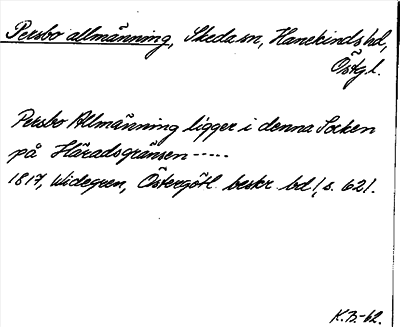 Persbo allmänning, Skeda sn, Hanekinds hd,
Östgl.
Persbo Allmänning ligger i denna Socken
på Häradsgränsen -----
1817, Widegren, Östergötl. beskr. bd 1, s. 621.
K.B.-62.